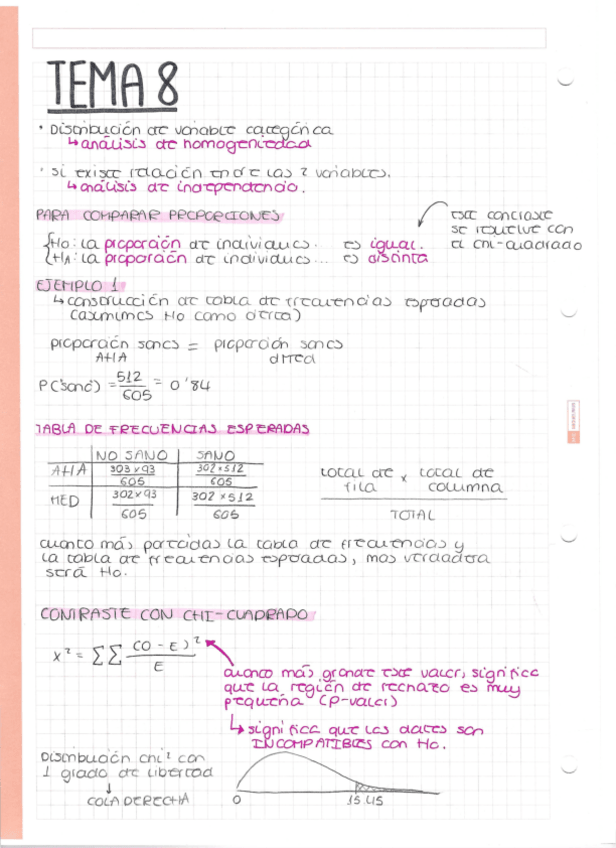 TEMA 8
• Distribución de variable categórica
↳ análisis de homogeniedad
• Si existe relación entre las 2 variables.
↳ análisis de independencia.
PARA COMPARAR PROPORCIONES
{ H0: la proporción de individuos.. es igual.
{ HA: la proporción de individuos... es distinta
este contraste
se resuelve con
el chi-cuadrado
EJEMPLO 1
↳ construcción de tabla de frecuencias esperadas
(asumimos H0 como cierta)
proporción sanos = proporción sanos
AHA dMed
P("sano) = 512/605 = 0'84
TABLA DE FRECUENCIAS ESPERADAS
NO SANO SANO
AHA 303×93/605 302×512/605
MED 302×93/605 302×512/605
total de fila × total de columna
TOTAL
cuanto más parecidas la tabla de frecuencias y
la tabla de frecuencias esperadas, mas verdadera
será H0.
CONTRASTE CON CHI-CUADRADO
x² = ΣΣ (O-E)²/E
cuanto más grande este valor, significa
que la región de rechazo es muy
pequeña (P-valor)
↳ significa que los datos son
INCOMPATIBLES con H0.
Distribución chi² con
1 grado de libertad
↓
COLA DERECHA
0 15.45